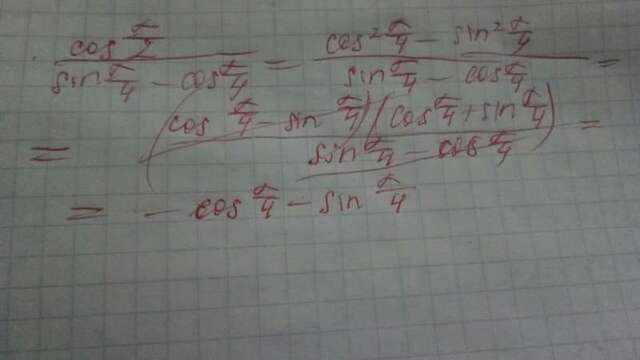 cos x/2 / (sin x/4 - cos x/4) = (cos² x/4 - sin² x/4) / (sin x/4 - cos x/4) =
= (cos x/4 - sin x/4)(cos x/4 + sin x/4) / (sin x/4 - cos x/4) =
= - cos x/4 - sin x/4